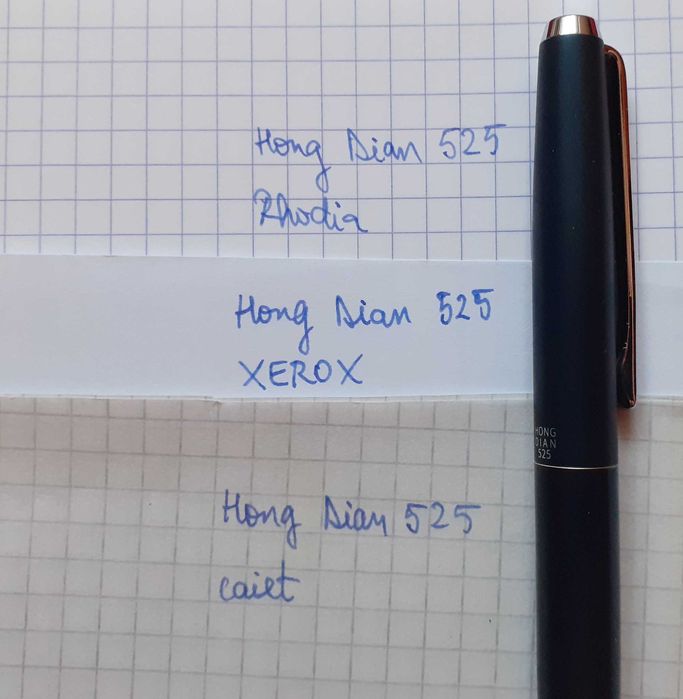 Hong Dian 525
Rhodia
Hong Dian 525
XEROX
HONG
DIAN
525
Hong Dian 525
caiet